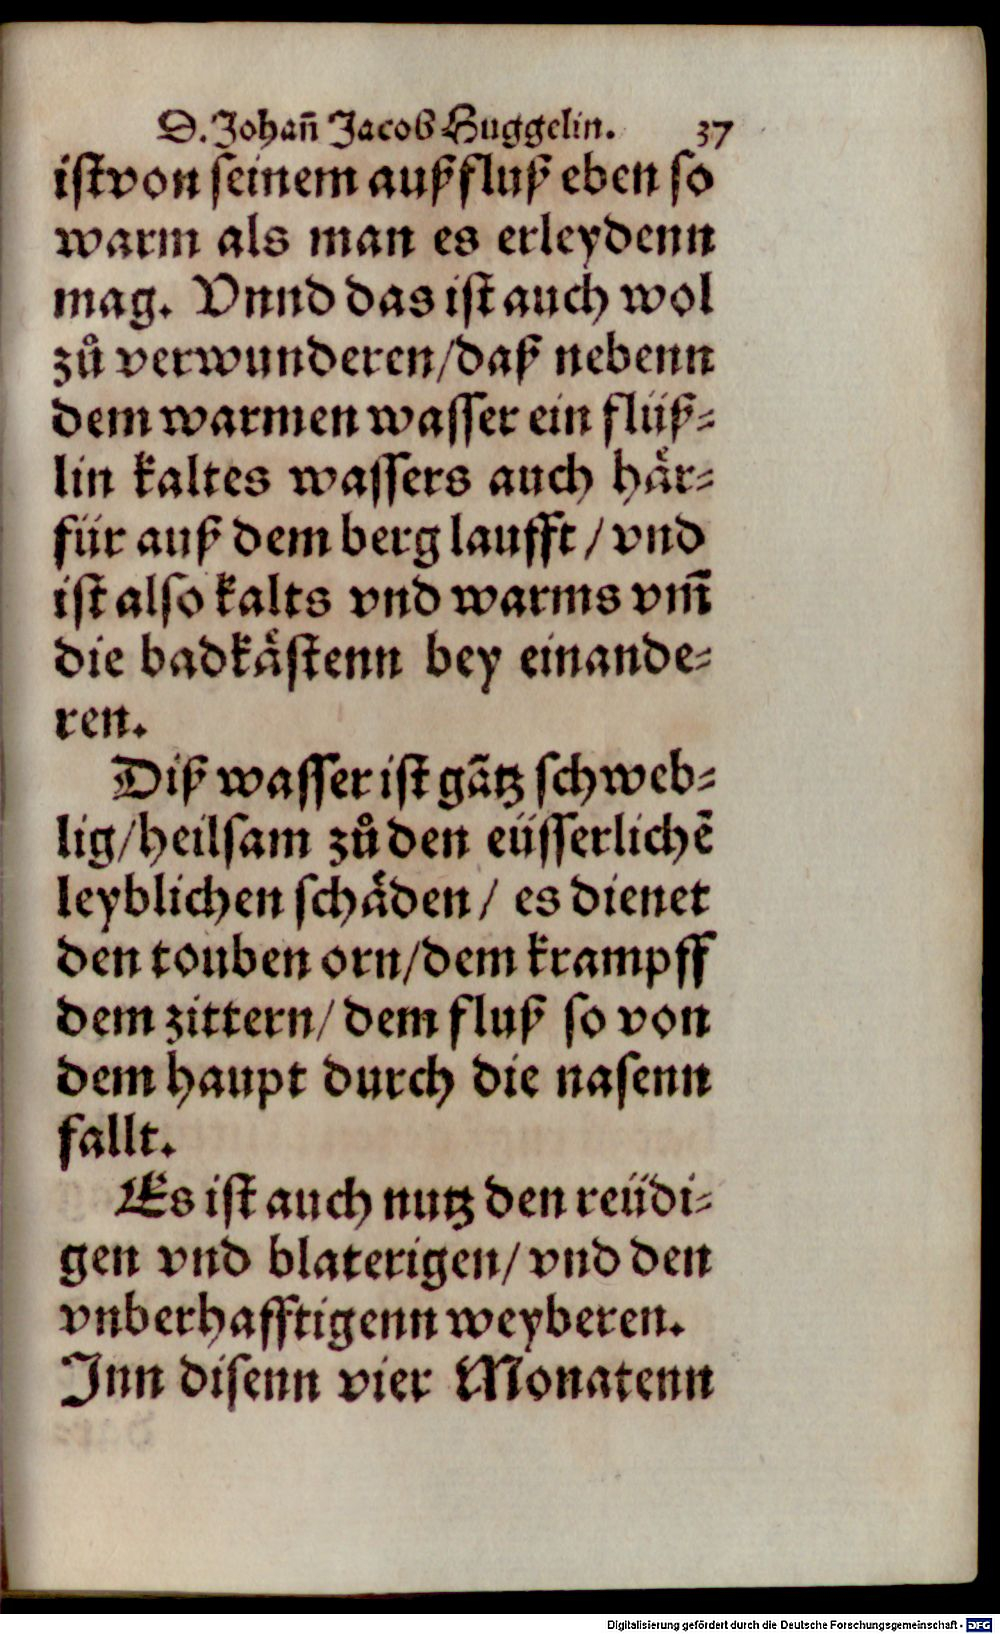 D. Johañ Jacob Huggelin. 37
ist von seinem außfluß eben so
warm als man es erleydenn
mag. Vnnd das ist auch wol
zů verwunderen/daß nebenn
dem warmen wasser ein flüß⸗
lin kaltes wassers auch haͤr⸗
für auß dem berg laufft / vnd
ist also kalts vnd warms vm̃
die badkaͤstenn bey einande⸗
ren.
Diß wasser ist gãtz schweb⸗
lig/heilsam zů den eüsserlichẽ
leyblichen schaͤden / es dienet
den touben orn/dem krampff
dem zittern/ dem fluß so von
dem haupt durch die nasenn
fallt.
Es ist auch nutz den reüdi⸗
gen vnd blaterigen/ vnd den
vnberhafftigenn weyberen.
Inn disenn vier Monatenn
Digitalisierung gefördert durch die Deutsche Forschungsgemeinschaft - DFG